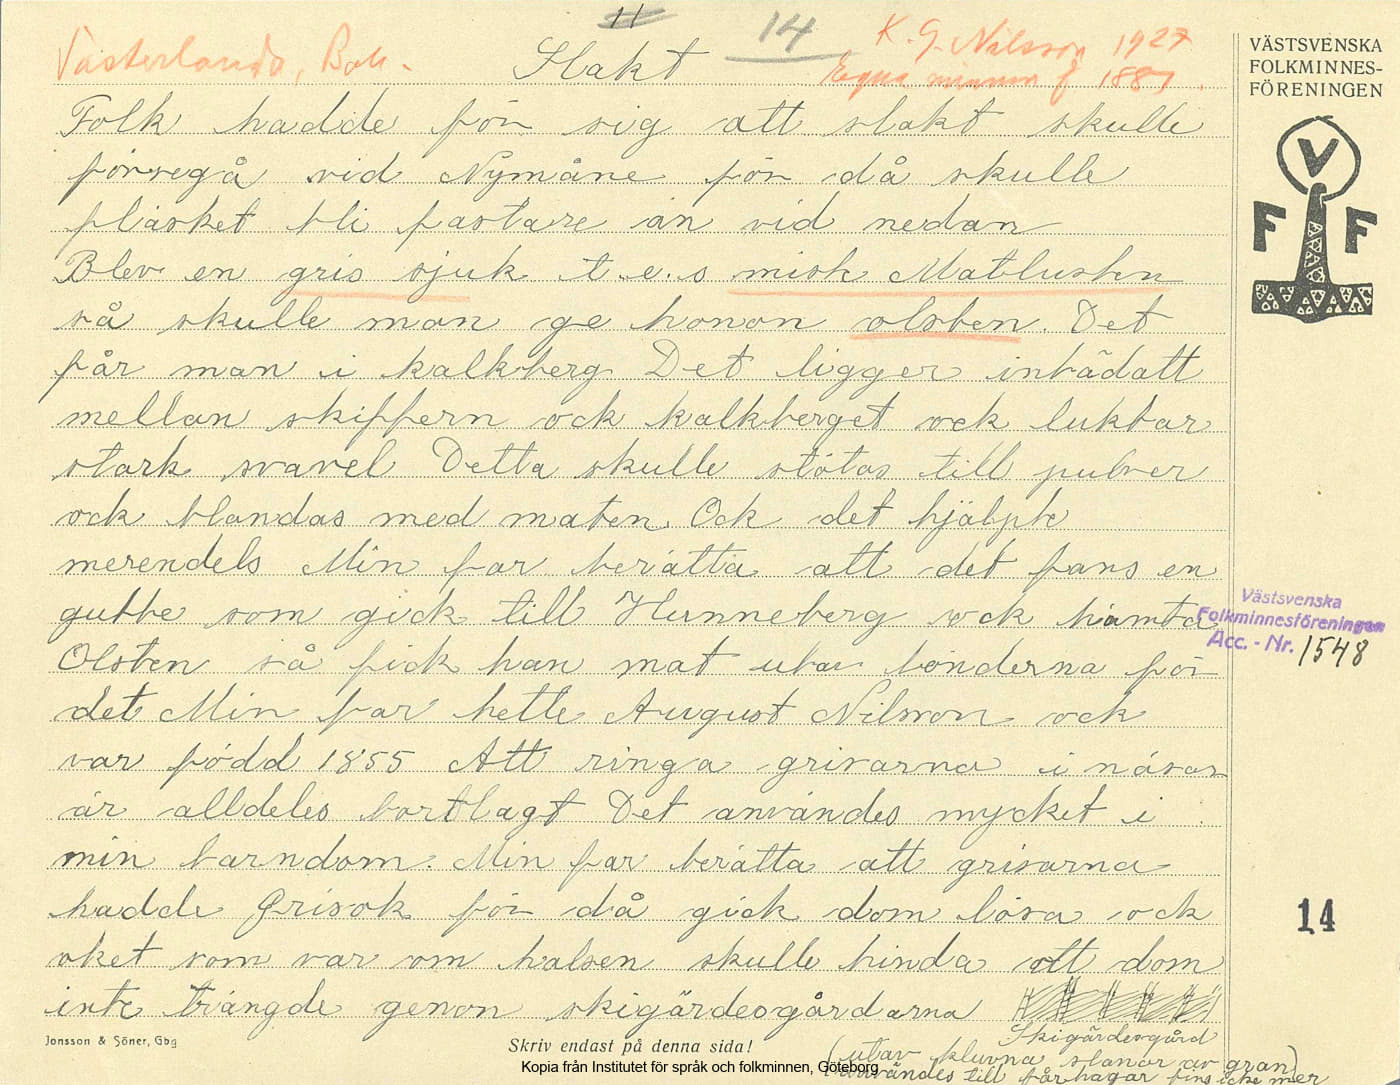 11
14
Västerlanda, Boh.
Slakt
K. G. Nilsson 1927
Egna minnen f 1887.
VÄSTSVENSKA
FOLKMINNES-
FÖRENINGEN
V
F F
Folk hadde för sig att slakt skulle
försegå vid Nymåne för då skulle
fläsket bli fastare än vid nedan
Blev en gris sjuk t.e.s misk Matlusten
så skulle man ge honon olsten. Det
får man i kalkberg Det ligger inbädatt
mellan skiffern ock kalkberget ock luktar
stark svavel Detta skulle stötas till pulver
ock blandas med maten. Ock det hjälpte
merendels Min far berätta att det fans en
gubbe som gick till Hunneberg ock hämta
Olsten så fick han mat utav bönderna för
det Min far hette August Nilsson ock
var född 1855 Att ringa grisarna i näsan
är alldeles bortlagt Det användes mycket i
min barndom. Min far berätta att grisarna
hadde Grisok för då gick dom lösa ock
oket som var om halsen skulle hinda att dom
inte trängde genon skigärdesgårdarna
Skigärdesgård
(utav kluvna slanor av gran)
användes till fårhagar fins icke mer
Västsvenska
Folkminnesföreningen
Acc. - Nr. 1548
14
Jonsson & Söner, Gbg
Skriv endast på denna sida!
Kopia från Institutet för språk och folkminnen, Göteborg